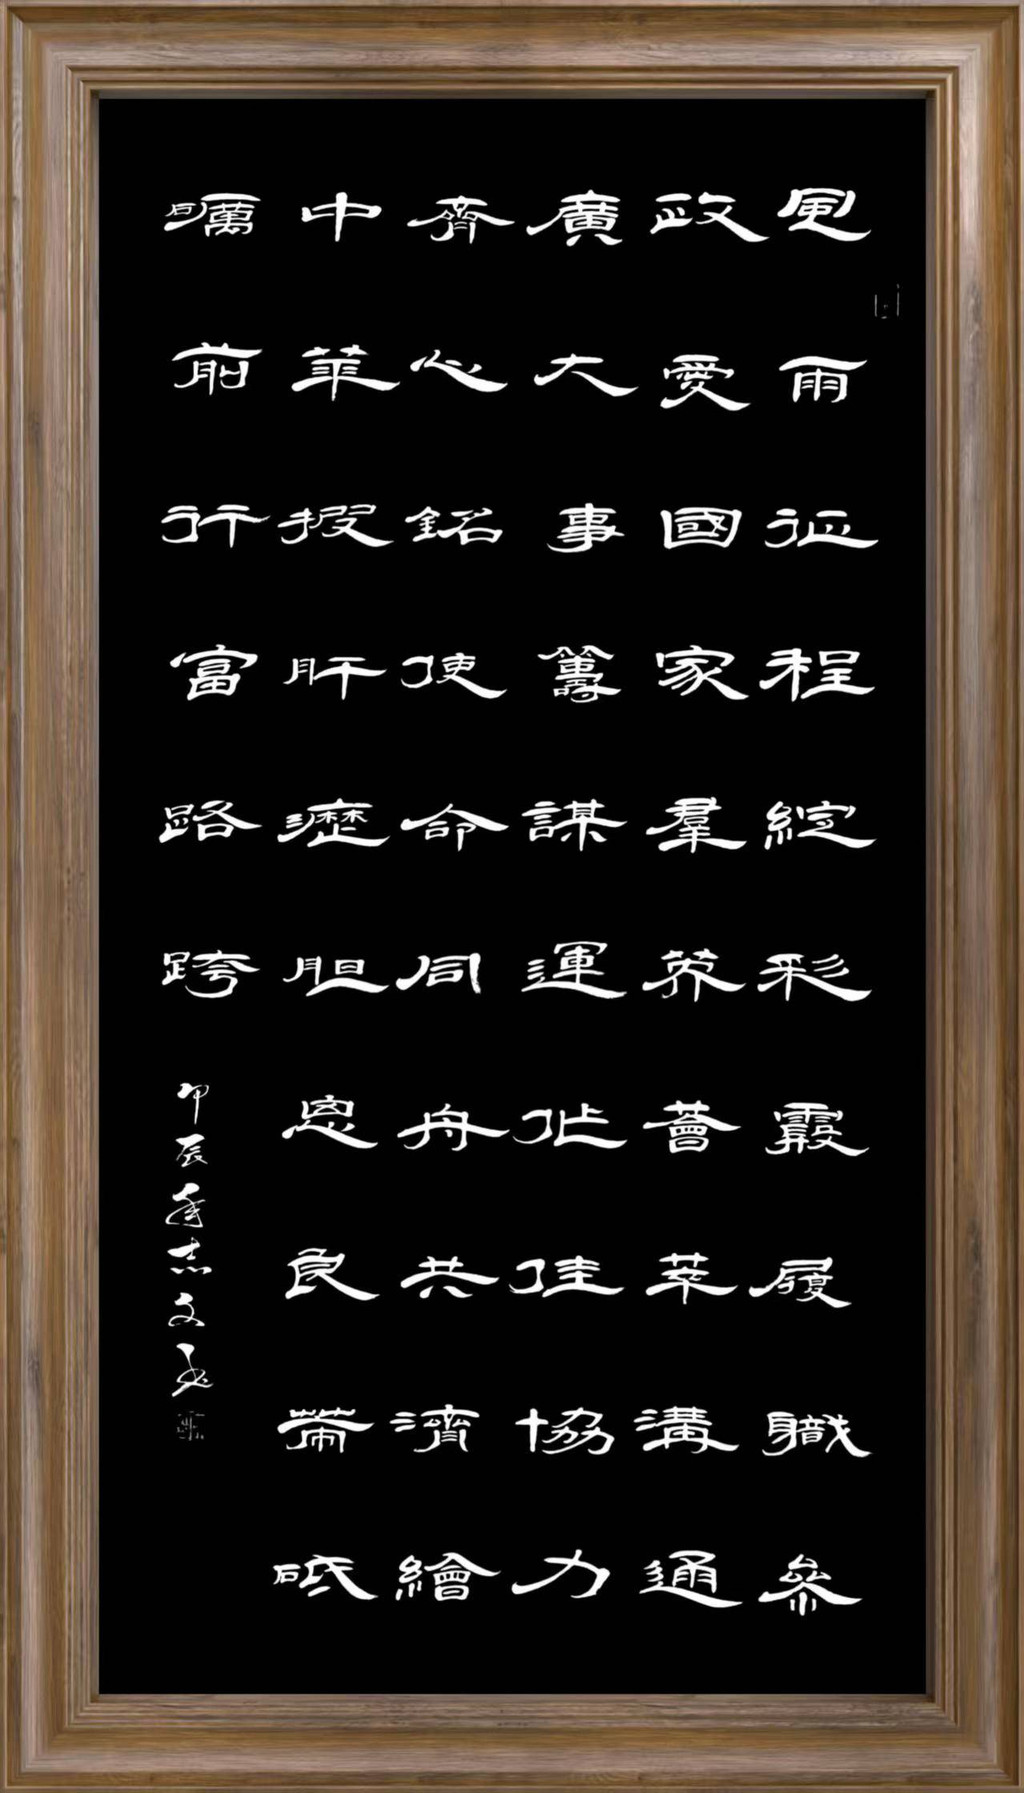 風雨征程綻彩霞履職參
政愛國家羣英薈萃溝通
廣大事籌謀運作佳協力
齊心銘使命同舟共濟繪
中華披肝瀝胆恩良帶砥
礪前行富路跨
甲辰年志文書